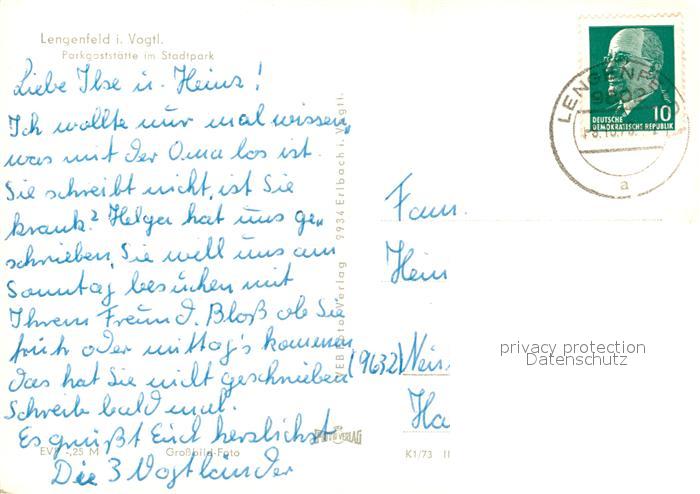 Lengenfeld i. Vogtl.
Parkgaststätte im Stadtpark
Liebe Ilse u. Heinz!
Ich wollte nur mal wissen,
was mit der Oma los ist.
Sie schreibt nicht, ist Sie
krank? Helga hat uns ge„
schrieben, Sie will uns am
Sonntag besuchen mit
Ihrem Freund. Bloß ob Sie
früh oder mittag's kommen
das hat Sie nicht geschrieben
Schreib bald mal.
Es grüßt Euch herzlichst
Die 3 Vogtländer
EVP -,25 M Großbild-Foto
VEB Foto-Verlag 9934 Erlbach i. Vogtl.
K1/73 II
LENGENFELD
a
10
DEUTSCHE
DEMOKRATISCHE REPUBLIK
Fam.
Hein
(9632)
Ha
privacy protection
Datenschutz